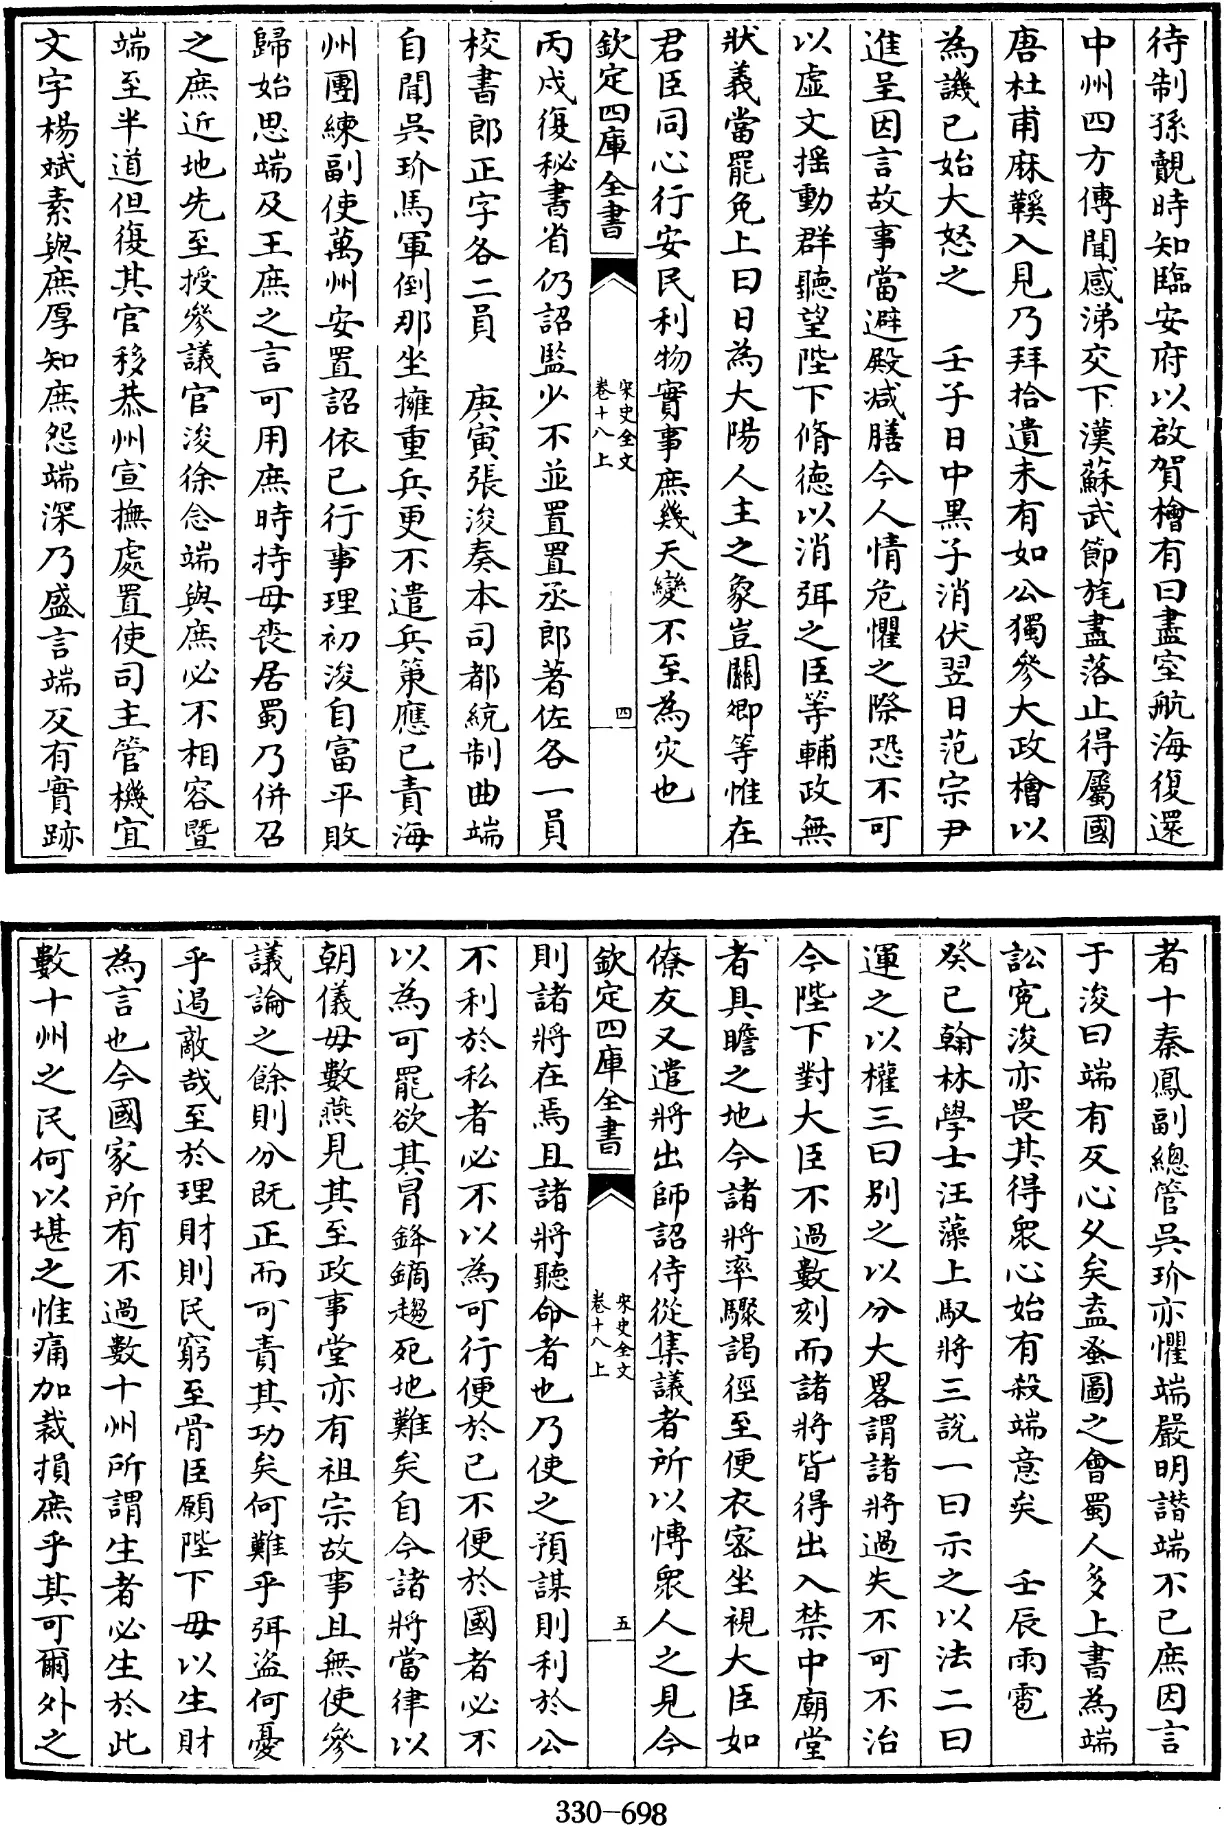 待制孫覿時知臨安府以啟賀檜有曰盡室航海復還
中州四方傳聞感涕交下漢蘇武節旄盡落止得屬國
唐杜甫麻鞵入見乃拜拾遺未有如公獨參大政檜以
為譏已始大怒之　壬子日中黑子消伏翌日范宗尹
進呈因言故事當避殿減膳今人情危懼之際恐不可
以虛文揺動群聽望陛下脩德以消弭之臣等輔政無
狀義當罷免上曰日為大陽人主之象豈關卿等惟在
君臣同心行安民利物實事庶幾天變不至為灾也
欽定四庫全書　宋史全文　卷十八上　四
丙戌復秘書省仍詔監少不並置置丞郎著佐各一員
校書郎正字各二員　庚寅張浚奏本司都統制曲端
自聞吳玠馬軍倒那坐擁重兵更不遣兵策應已責海
州團練副使萬州安置詔依已行事理初浚自富平敗
歸始思端及王庶之言可用庶時持母喪居蜀乃併召
之庶近地先至授參議官浚徐念端與庶必不相容暨
端至半道但復其官移恭州宣撫處置使司主管機宜
文字楊斌素與庶厚知庶怨端深乃盛言端反有實跡
者十秦鳳副總管吳玠亦懼端嚴明譖端不已庶因言
于浚曰端有反心久矣盍蚤圖之會蜀人多上書為端
訟寃浚亦畏其得衆心始有殺端意矣　壬辰雨雹
癸已翰林學士汪藻上馭將三說一曰示之以法二曰
運之以權三曰别之以分大畧謂諸將過失不可不治
今陛下對大臣不過數刻而諸將皆得出入禁中廟堂
者具瞻之地今諸將率驟謁徑至便衣密坐視大臣如
僚友又遣將出師詔侍從集議者所以愽衆人之見今
欽定四庫全書　宋史全文　卷十八上　五
則諸將在焉且諸將聽命者也乃使之預謀則利於公
不利於私者必不以為可行便於已不便於國者必不
以為可罷欲其冐鋒鏑趨死地難矣自今諸將當律以
朝儀毋數燕見其至政事堂亦有祖宗故事且無使參
議論之餘則分既正而可責其功矣何難乎弭盗何憂
乎遏敵哉至於理財則民窮至骨臣願陛下毋以生財
為言也今國家所有不過數十州所謂生者必生於此
數十州之民何以堪之惟痛加裁損庶乎其可爾外之
330-698